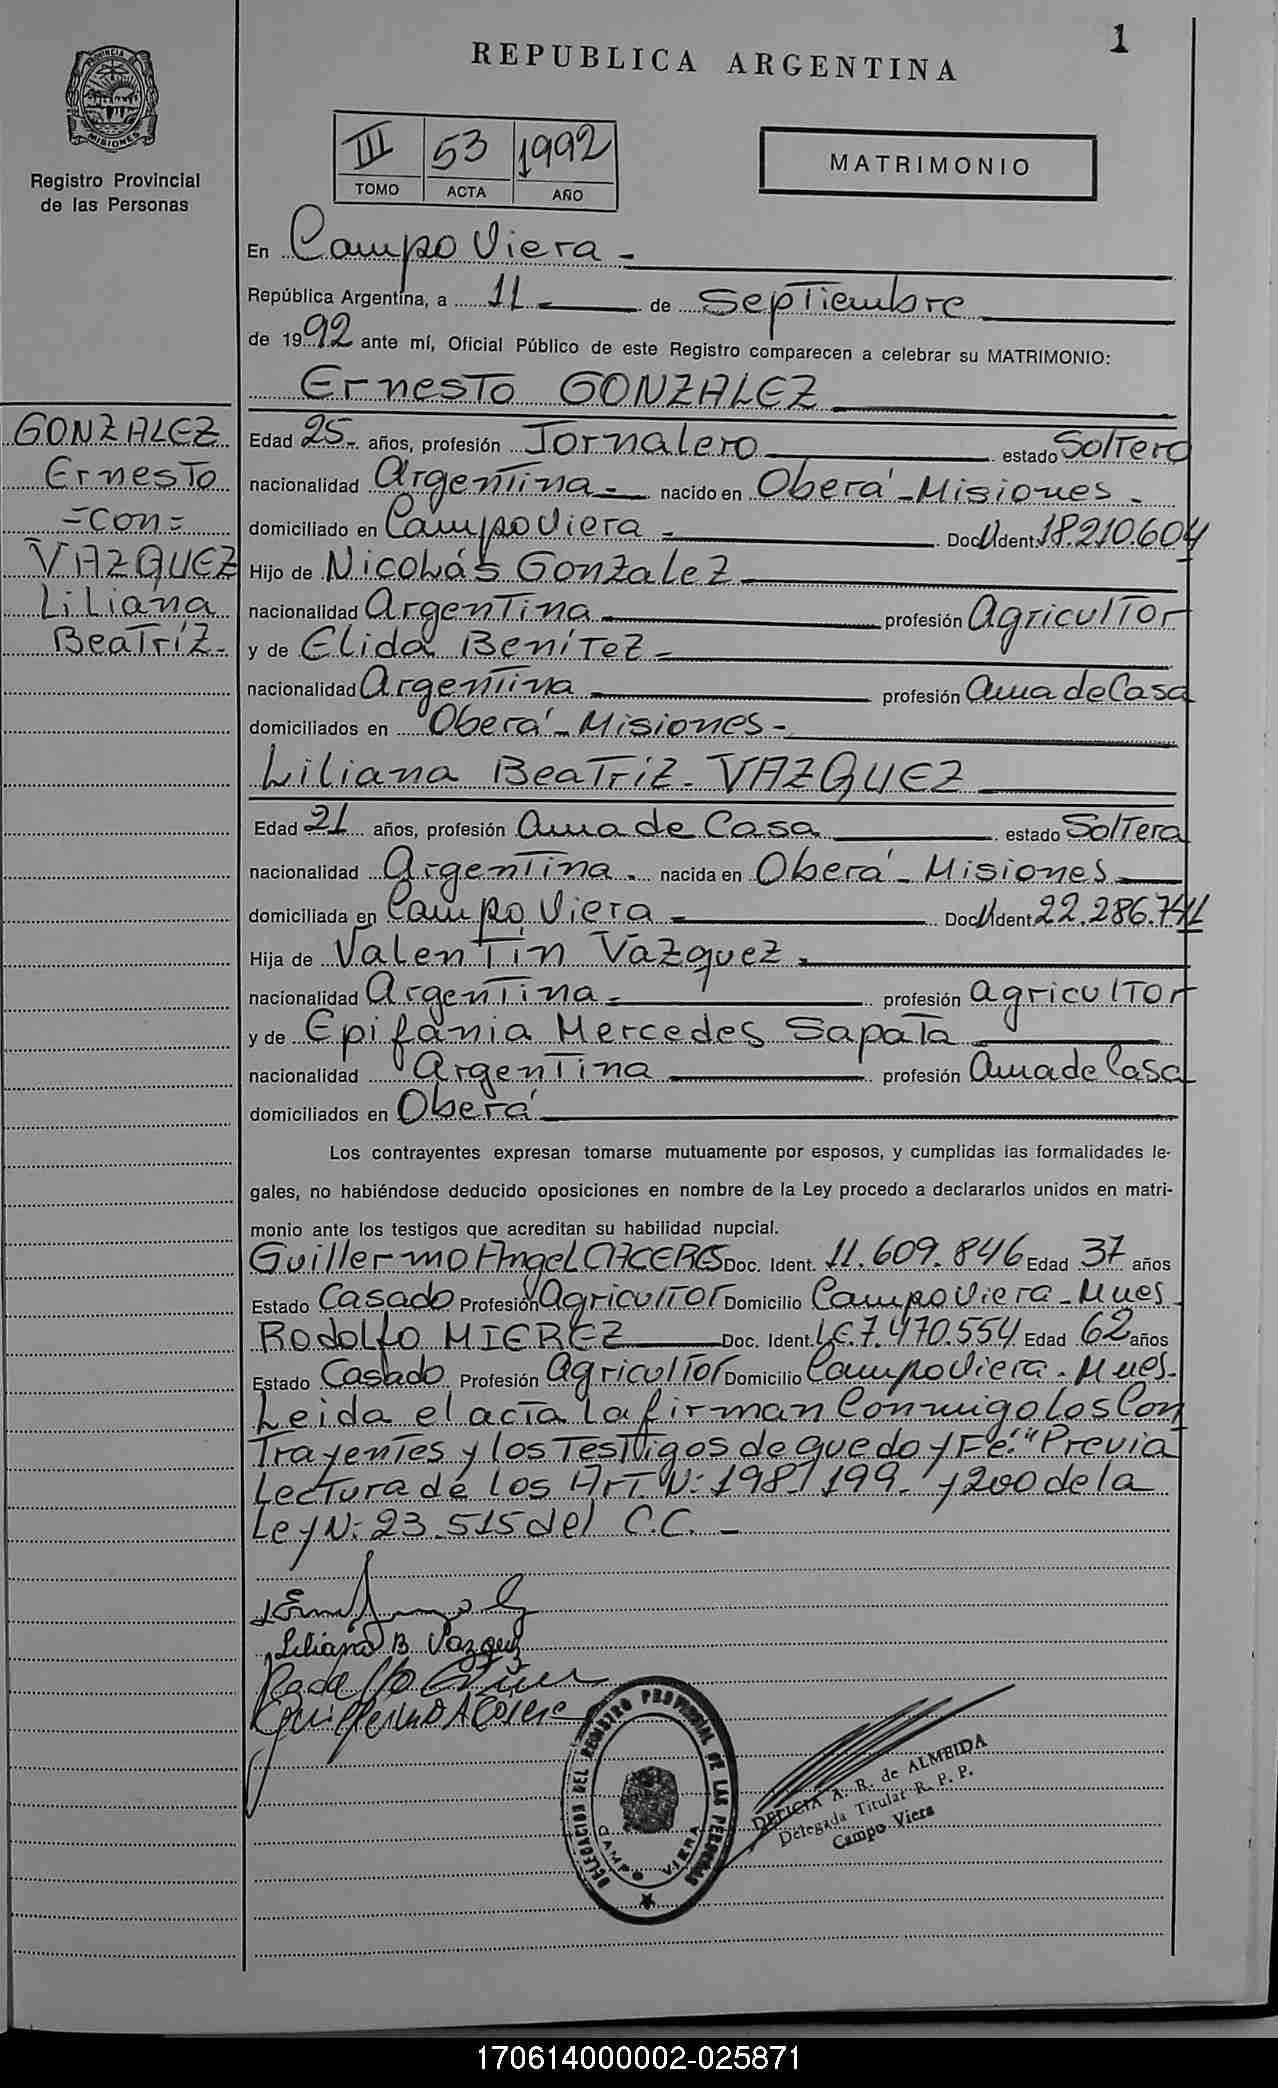 1
REPUBLICA ARGENTINA
PROVINCIA DE
MISIONES
Registro Provincial
de las Personas
III 53 1992
TOMO ACTA AÑO
MATRIMONIO
En Campo Viera -
República Argentina, a 11 - de Septiembre
de 1992 ante mí, Oficial Público de este Registro comparecen a celebrar su MATRIMONIO:
Ernesto GONZALEZ
GONZALEZ
Ernesto
=con=
VAZQUEZ
Liliana
Beatríz-
Edad 25- años, profesión Jornalero estado Soltero
nacionalidad Argentina - nacido en Oberá - Misiones -
domiciliado en Campo Viera - Doc. Ident. 18.210.604
Hijo de Nicolás Gonzalez
nacionalidad Argentina profesión Agricultor
y de Elida Benítez -
nacionalidad Argentina profesión Ama de Casa
domiciliados en Oberá - Misiones -
Liliana Beatríz - VAZQUEZ
Edad 21 años, profesión Ama de Casa estado Soltera
nacionalidad Argentina - nacida en Oberá - Misiones
domiciliada en Campo Viera - Doc. Ident. 22.286.741
Hija de Valentín Vázquez -
nacionalidad Argentina - profesión Agricultor
y de Epifánia Mercedes Sapata
nacionalidad Argentina profesión Ama de Casa
domiciliados en Oberá
Los contrayentes expresan tomarse mutuamente por esposos, y cumplidas las formalidades le-
gales, no habiéndose deducido oposiciones en nombre de la Ley procedo a declararlos unidos en matri-
monio ante los testigos que acreditan su habilidad nupcial.
Guillermo Angel CACERES Doc. Ident. 11.609.846 Edad 37 años
Estado Casado Profesión Agricultor Domicilio Campo Viera - Mnes.
Rodolfo MIEREZ Doc. Ident. LE.7.470.554 Edad 62 años
Estado Casado Profesión Agricultor Domicilio Campo Viera - Mnes.
Leida el acta la firman Conmigo los Con
Trayentes y los Testigos de que doy Fé. "Previa
Lectura de los Art. N: 198, 199 - y 200 de la
Ley N: 23.515 del C.C. -
Liliana B Vazquez
Guillermo A Caceres
DELEGACION DEL REGISTRO PROVINCIAL DE LAS PERSONAS
CAMPO VIERA
DELICIA A. R. de ALMEIDA
Delegada Titular R. P. P.
Campo Viera
170614000002-025871